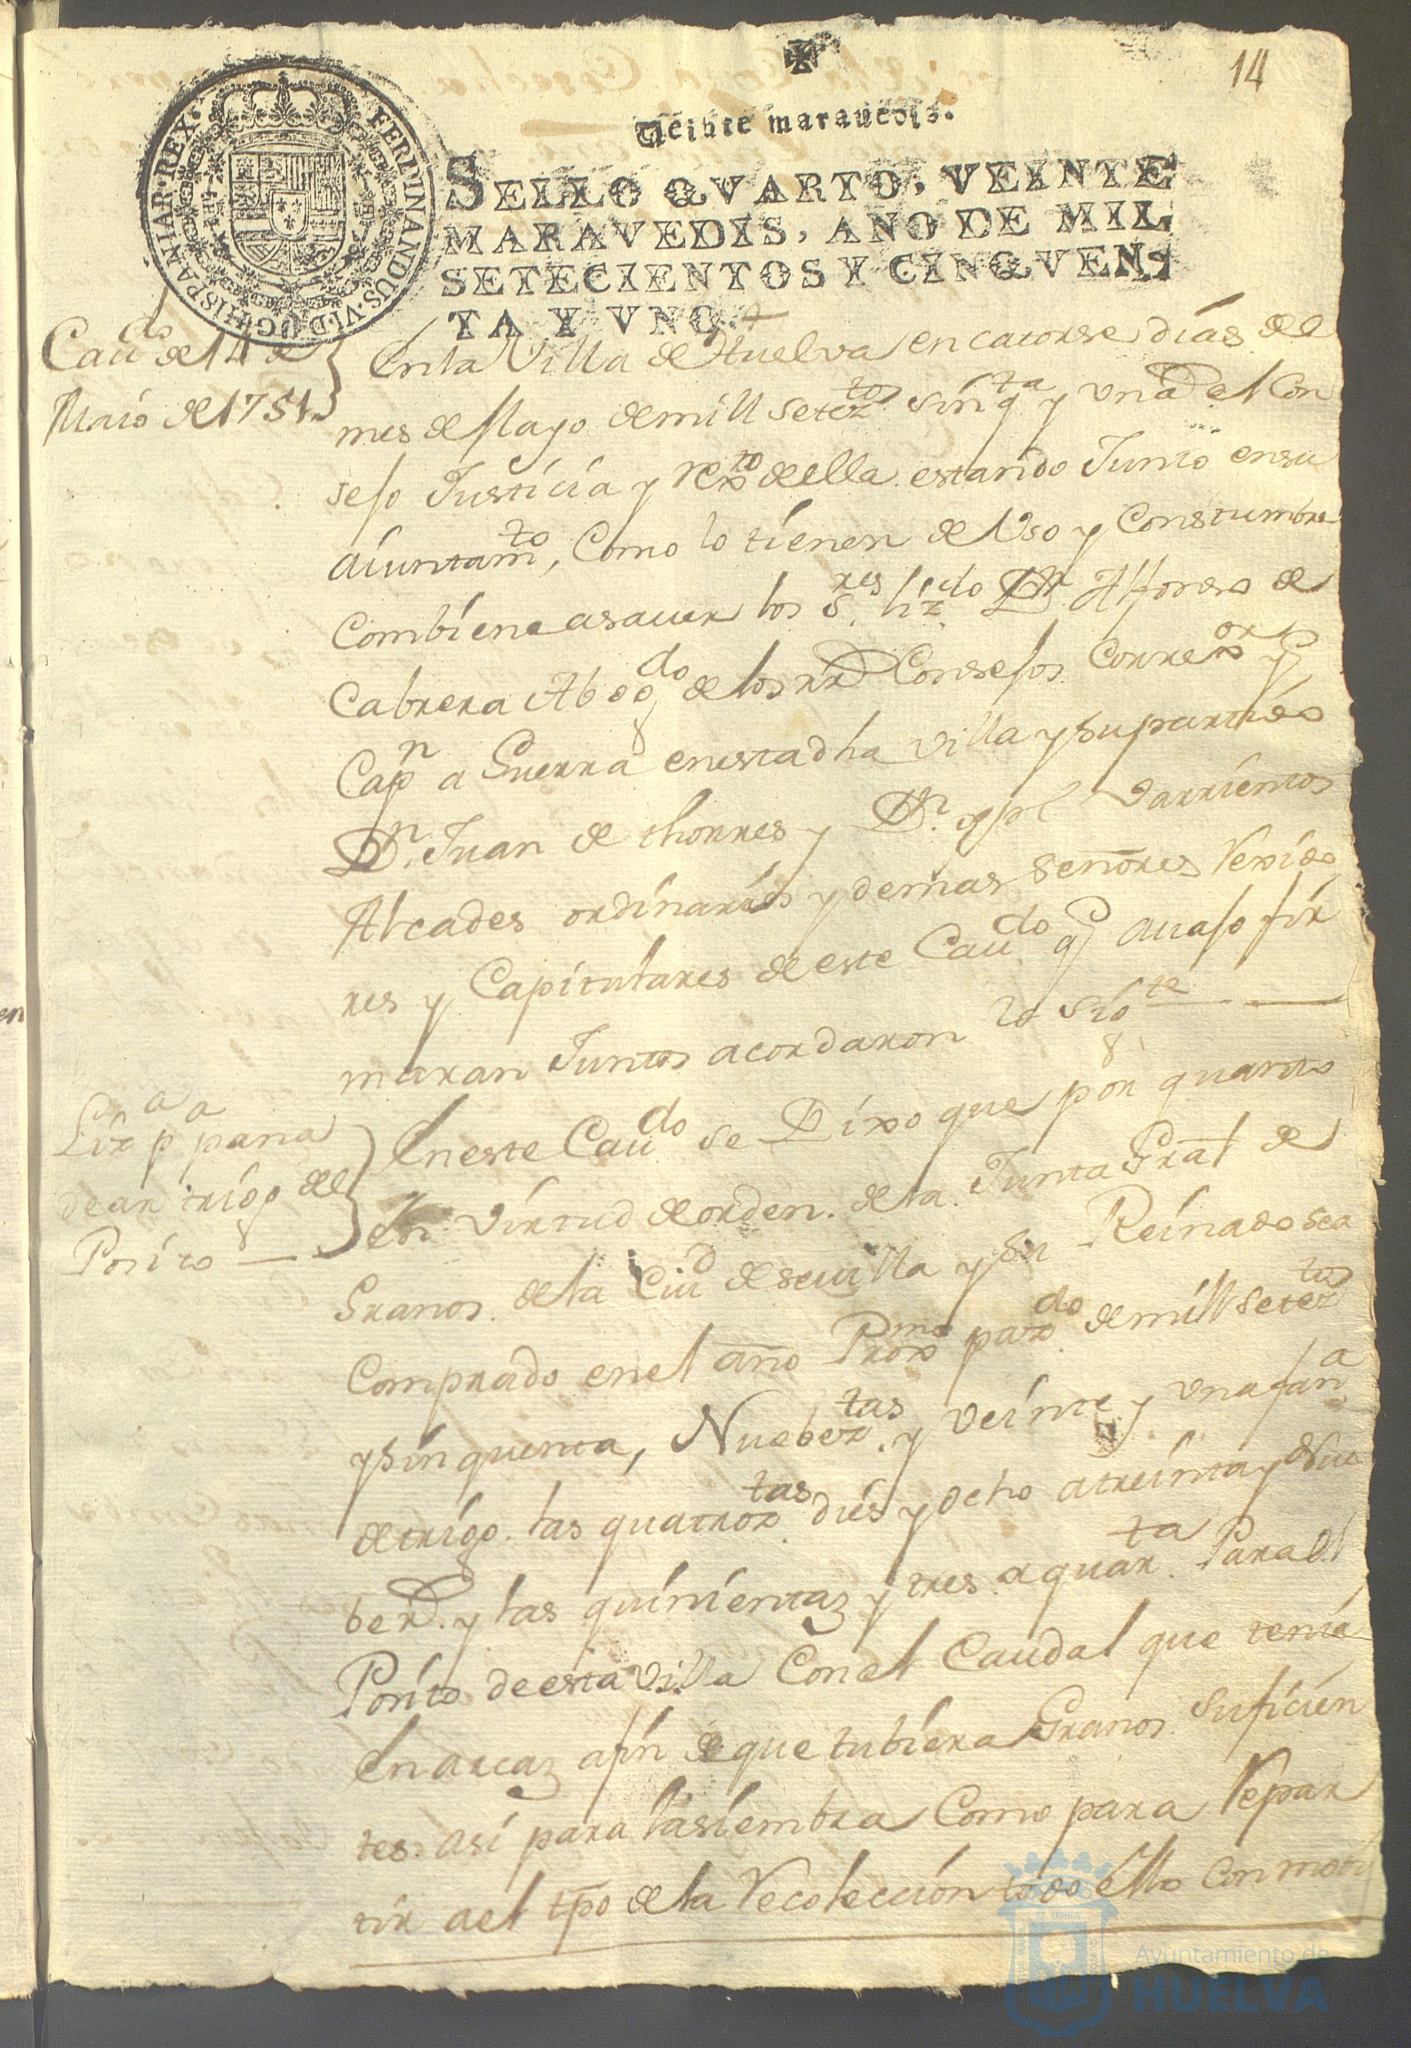 14
Veinte maravedis.
SELLO QVARTO, VEINTE
MARAVEDIS, AÑO DE MIL
SETECIENTOS Y CINQVEN-
TA Y VNO.
FERDINANDUS·VI·D·G·HISPANIAR·REX·
Caudo de 14 de
Maio de 1751.
En la Villa de Huelva en catorse dias del
mes de Mayo de mill seteztos sinqta y uno el Con
sejo Justicia y Rexto della estando Junto en su
aiuntamto, Como lo tienen de Uso y Constumbre
Combiene a sauer los Sres. Lizdo Dn Alfonso de
Cabrera Abogdo de los RRs Consejos Correxor y
Capn a Guerra en esta dha villa y su partido
Dn. Juan de thorres y Dn. xpl Varrientos
Alcades ordinarios y demas señores Rexido
res y Capitulares de este Caudo q avajo fir
maran Juntos acordaron lo sigte
Lizª pª pana
dear trigo del
Posito
En este Caudo se Dixo que por quanto
en virtud de orden de la Junta Gral de
Granos de la Ciud de Sevilla y su Reinado sea
Comprado en el año Proxmo paxdo de mill seteztos
y sinquenta, Nuebeztas y veinte y una fana
de trigo las quatroztas dies y ocho a treinta y Nue
be rs. y las quinientaz y tres a quarta Para el
Posito de esta villa Con el Caudal que tenia
En arcaz afin de que tubiera Granos suficien
tes asi para la siembra Como para Repar
tir a el tpo de la Recoleccion todo ello con moti
Ayuntamiento de
HUELVA